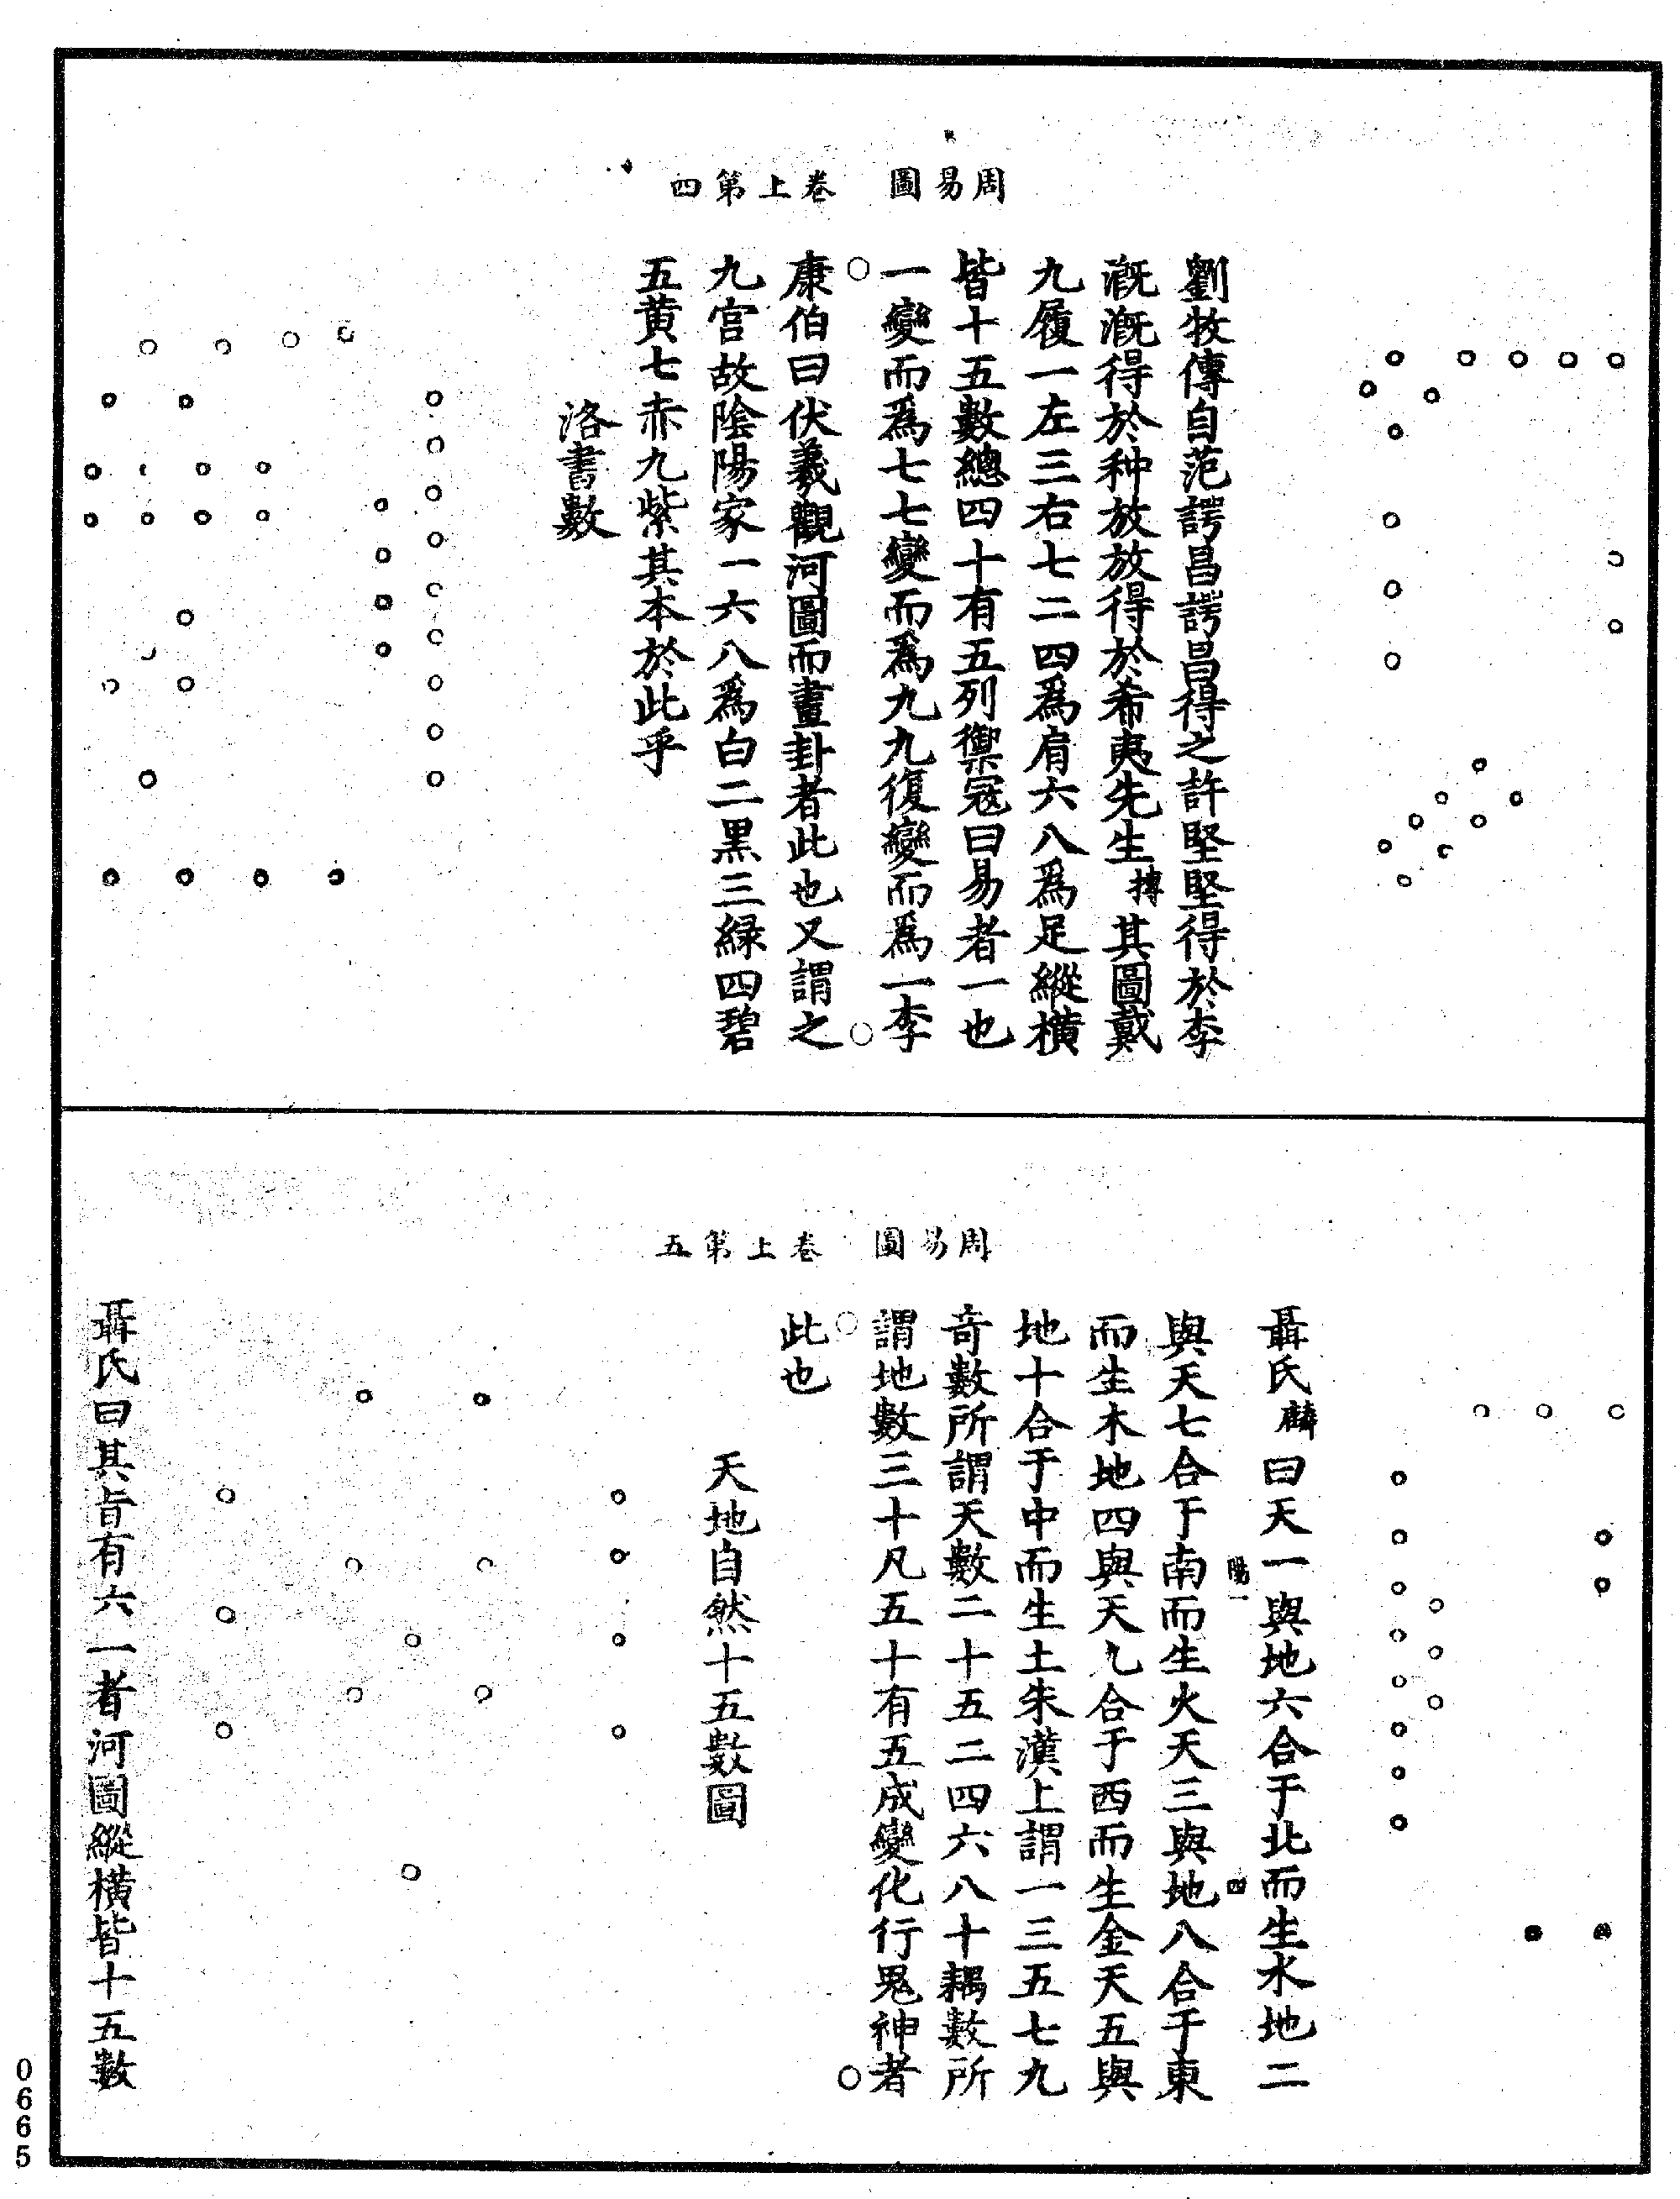 周易圖　卷上第四
劉牧傳自范諤昌諤昌得之許堅堅得於李
溉溉得於种放放得於希夷先生摶其圖戴
九履一左三右七二四爲肩六八爲足縱橫
皆十五數總四十有五列禦寇曰易者一也
一變而爲七七變而爲九九復變而爲一李
康伯曰伏羲觀河圖而畫卦者此也又謂之
九宮故陰陽家一六八爲白二黑三綠四碧
五黃七赤九紫其本於此乎
洛書數
周易圖　卷上第五
聶氏麟曰天一與地六合于北而生水地二
陽一
四
與天七合于南而生火天三與地八合于東
而生木地四與天九合于西而生金天五與
地十合于中而生土朱漢上謂一三五七九
奇數所謂天數二十五二四六八十耦數所
謂地數三十凡五十有五成變化行鬼神者
此也
天地自然十五數圖
聶氏曰其旨有六一者河圖縱橫皆十五數
0665